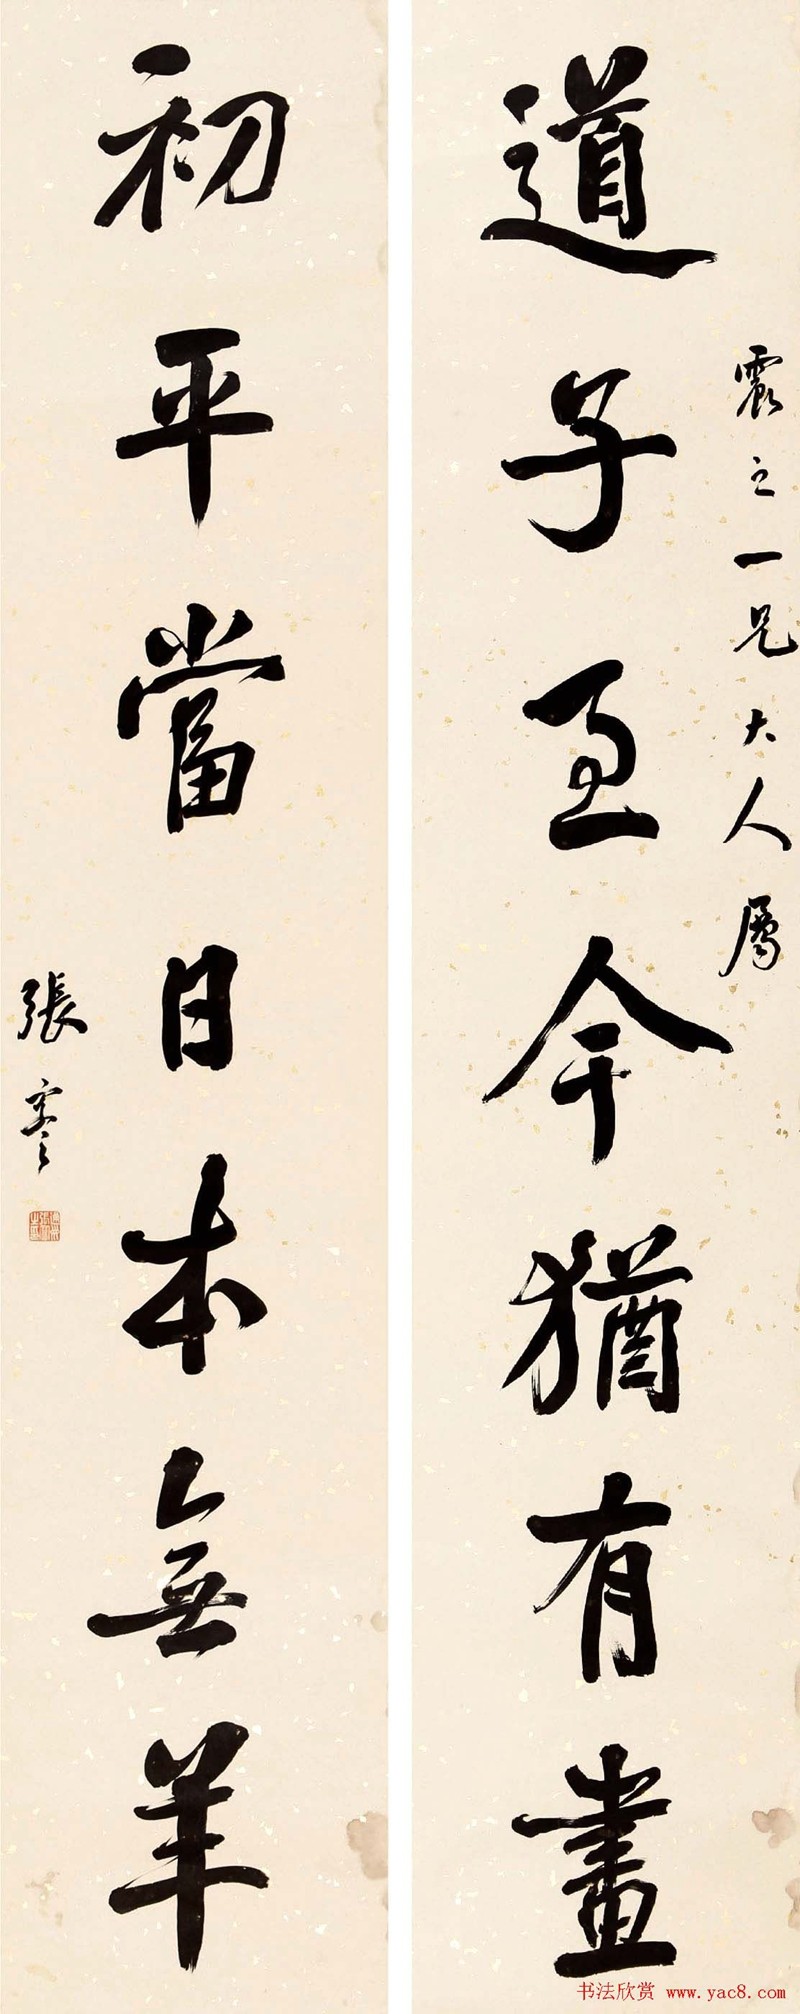 道子至今猶有畫
震之一兄大人屬
初平當日本無羊
張謇
书法欣赏 www.yac8.com